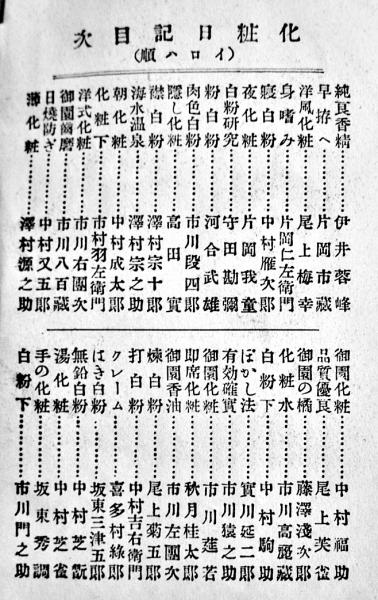 化粧日記目次
(イロハ順)
純良香精………伊井蓉峰
早拵へ………片岡市藏
洋風化粧………尾上梅幸
身嗜み………片岡仁左衞門
寢白粉………中村雁次郎
夜化粧………片岡我童
白粉研究………守田勘彌
粉白粉………河合武雄
肉色白粉………市川段四郎
隱し化粧………高田實
襟白粉………澤村宗十郎
海水温泉………澤村宗之助
朝化粧………中村成太郎
化粧下………市村羽左衞門
洋式化粧………市川右團次
御園齒磨………市川八百藏
日燒防ぎ………中村又五郎
薄化粧………澤村源之助
御園化粧………中村福助
品質優良………尾上芙雀
御園の橘………藤澤淺次郎
化粧水………市川高麗藏
白粉下………中村駒助
ぼかし法………實川延二郎
有効確實………市川猿之助
御園化粧………市川莚若
即席化粧………秋月桂太郎
御園香油………市川左團次
煉白粉………尾上菊五郎
打白粉………中村吉右衞門
クレーム………喜多村綠郎
はき白粉………坂東三津五郎
無鉛白粉………中村芝翫
湯化粧………中村芝雀
手の化粧………坂東秀調
白粉下………市川門之助